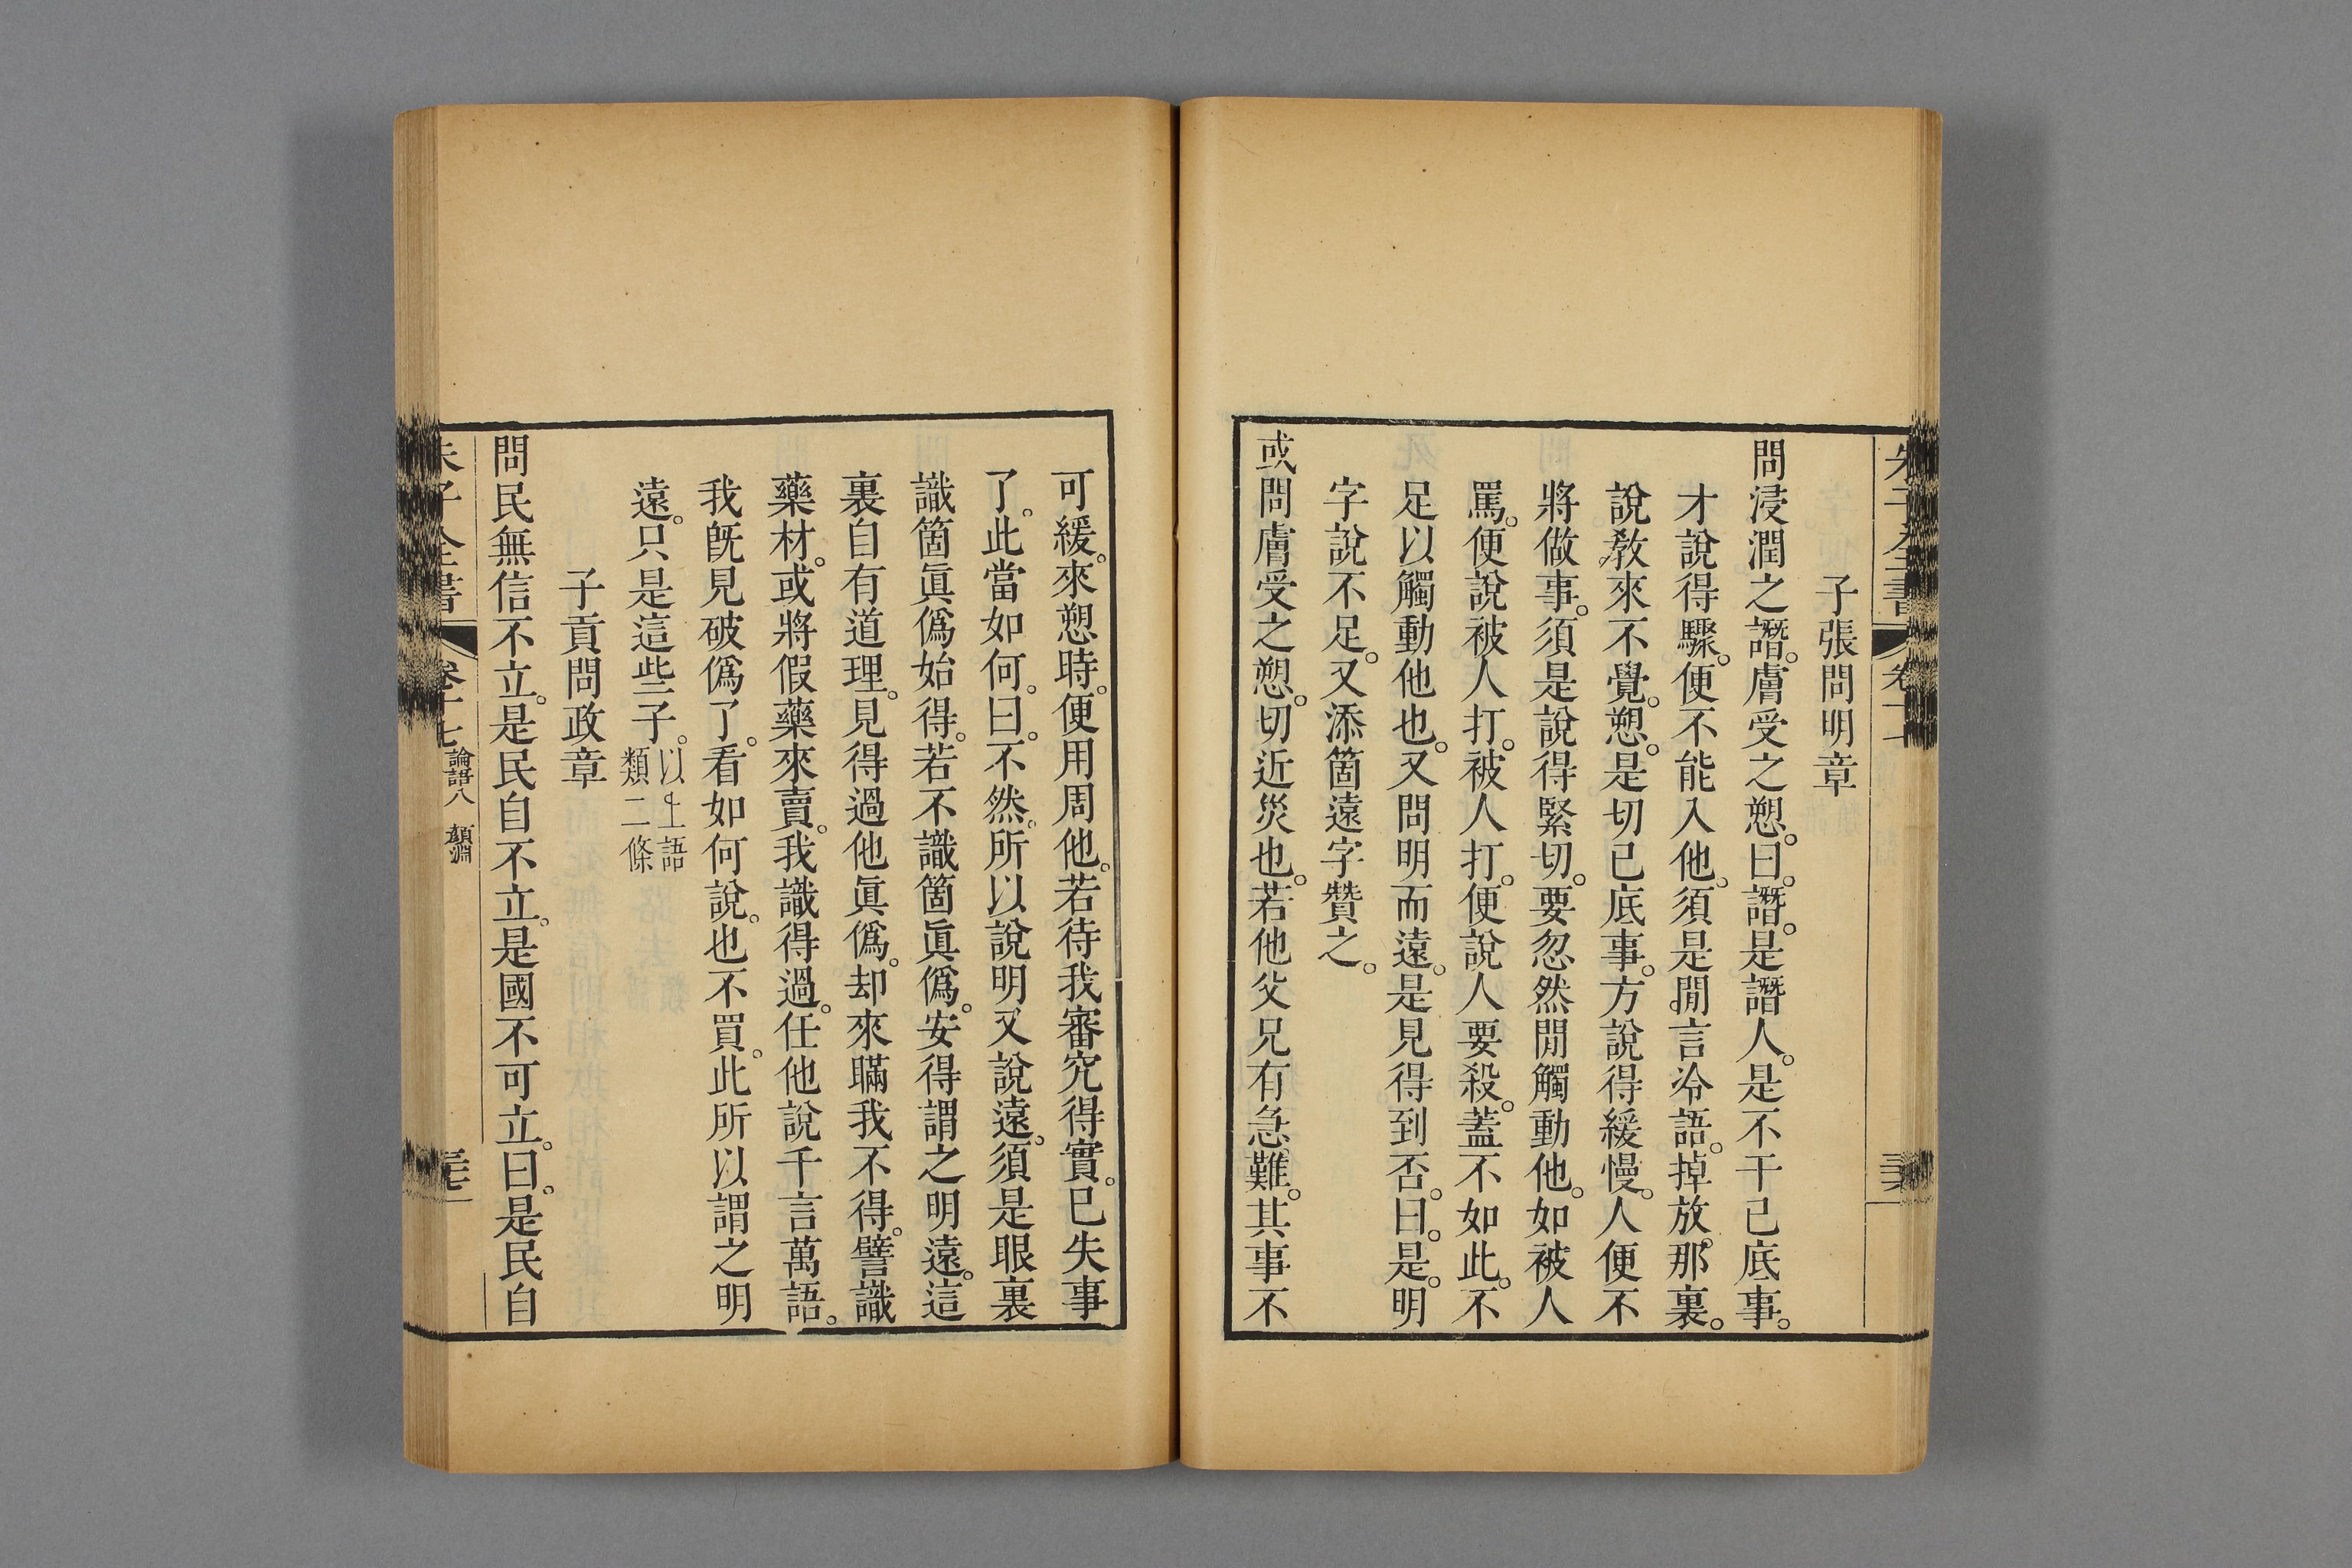 子張問明章
問浸潤之譖。膚受之愬。曰。譖。是譖人。是不干己底事。
才說得驟。便不能入他。須是閒言冷語。掉放那裏。
說教來不覺。愬。是切己底事。方說得緩慢。人便不
將做事。須是說得緊切。要忽然閒觸動他。如被人
罵。便說被人打。被人打。便說人要殺。蓋不如此。不
足以觸動他也。又問明而遠。是見得到否。曰。是。明
字說不足。又添箇遠字贊之。
或問膚受之愬。切近災也。若他父兄有急難。其事不
可緩。來愬時。便用周他。若待我審究得實。已失事
了。此當如何。曰。不然。所以說明又說遠。須是眼裏
識箇眞僞始得。若不識箇眞僞。安得謂之明遠。這
裏自有道理。見得過他眞僞。却來瞞我不得。譬識
藥材。或將假藥來賣。我識得過。任他說千言萬語。
我旣見破僞了。看如何說。也不買。此所以謂之明
遠。只是這些子。以上語
類二條
子貢問政章
問民無信不立。是民自不立。是國不可立。曰。是民自
論語八 顏淵